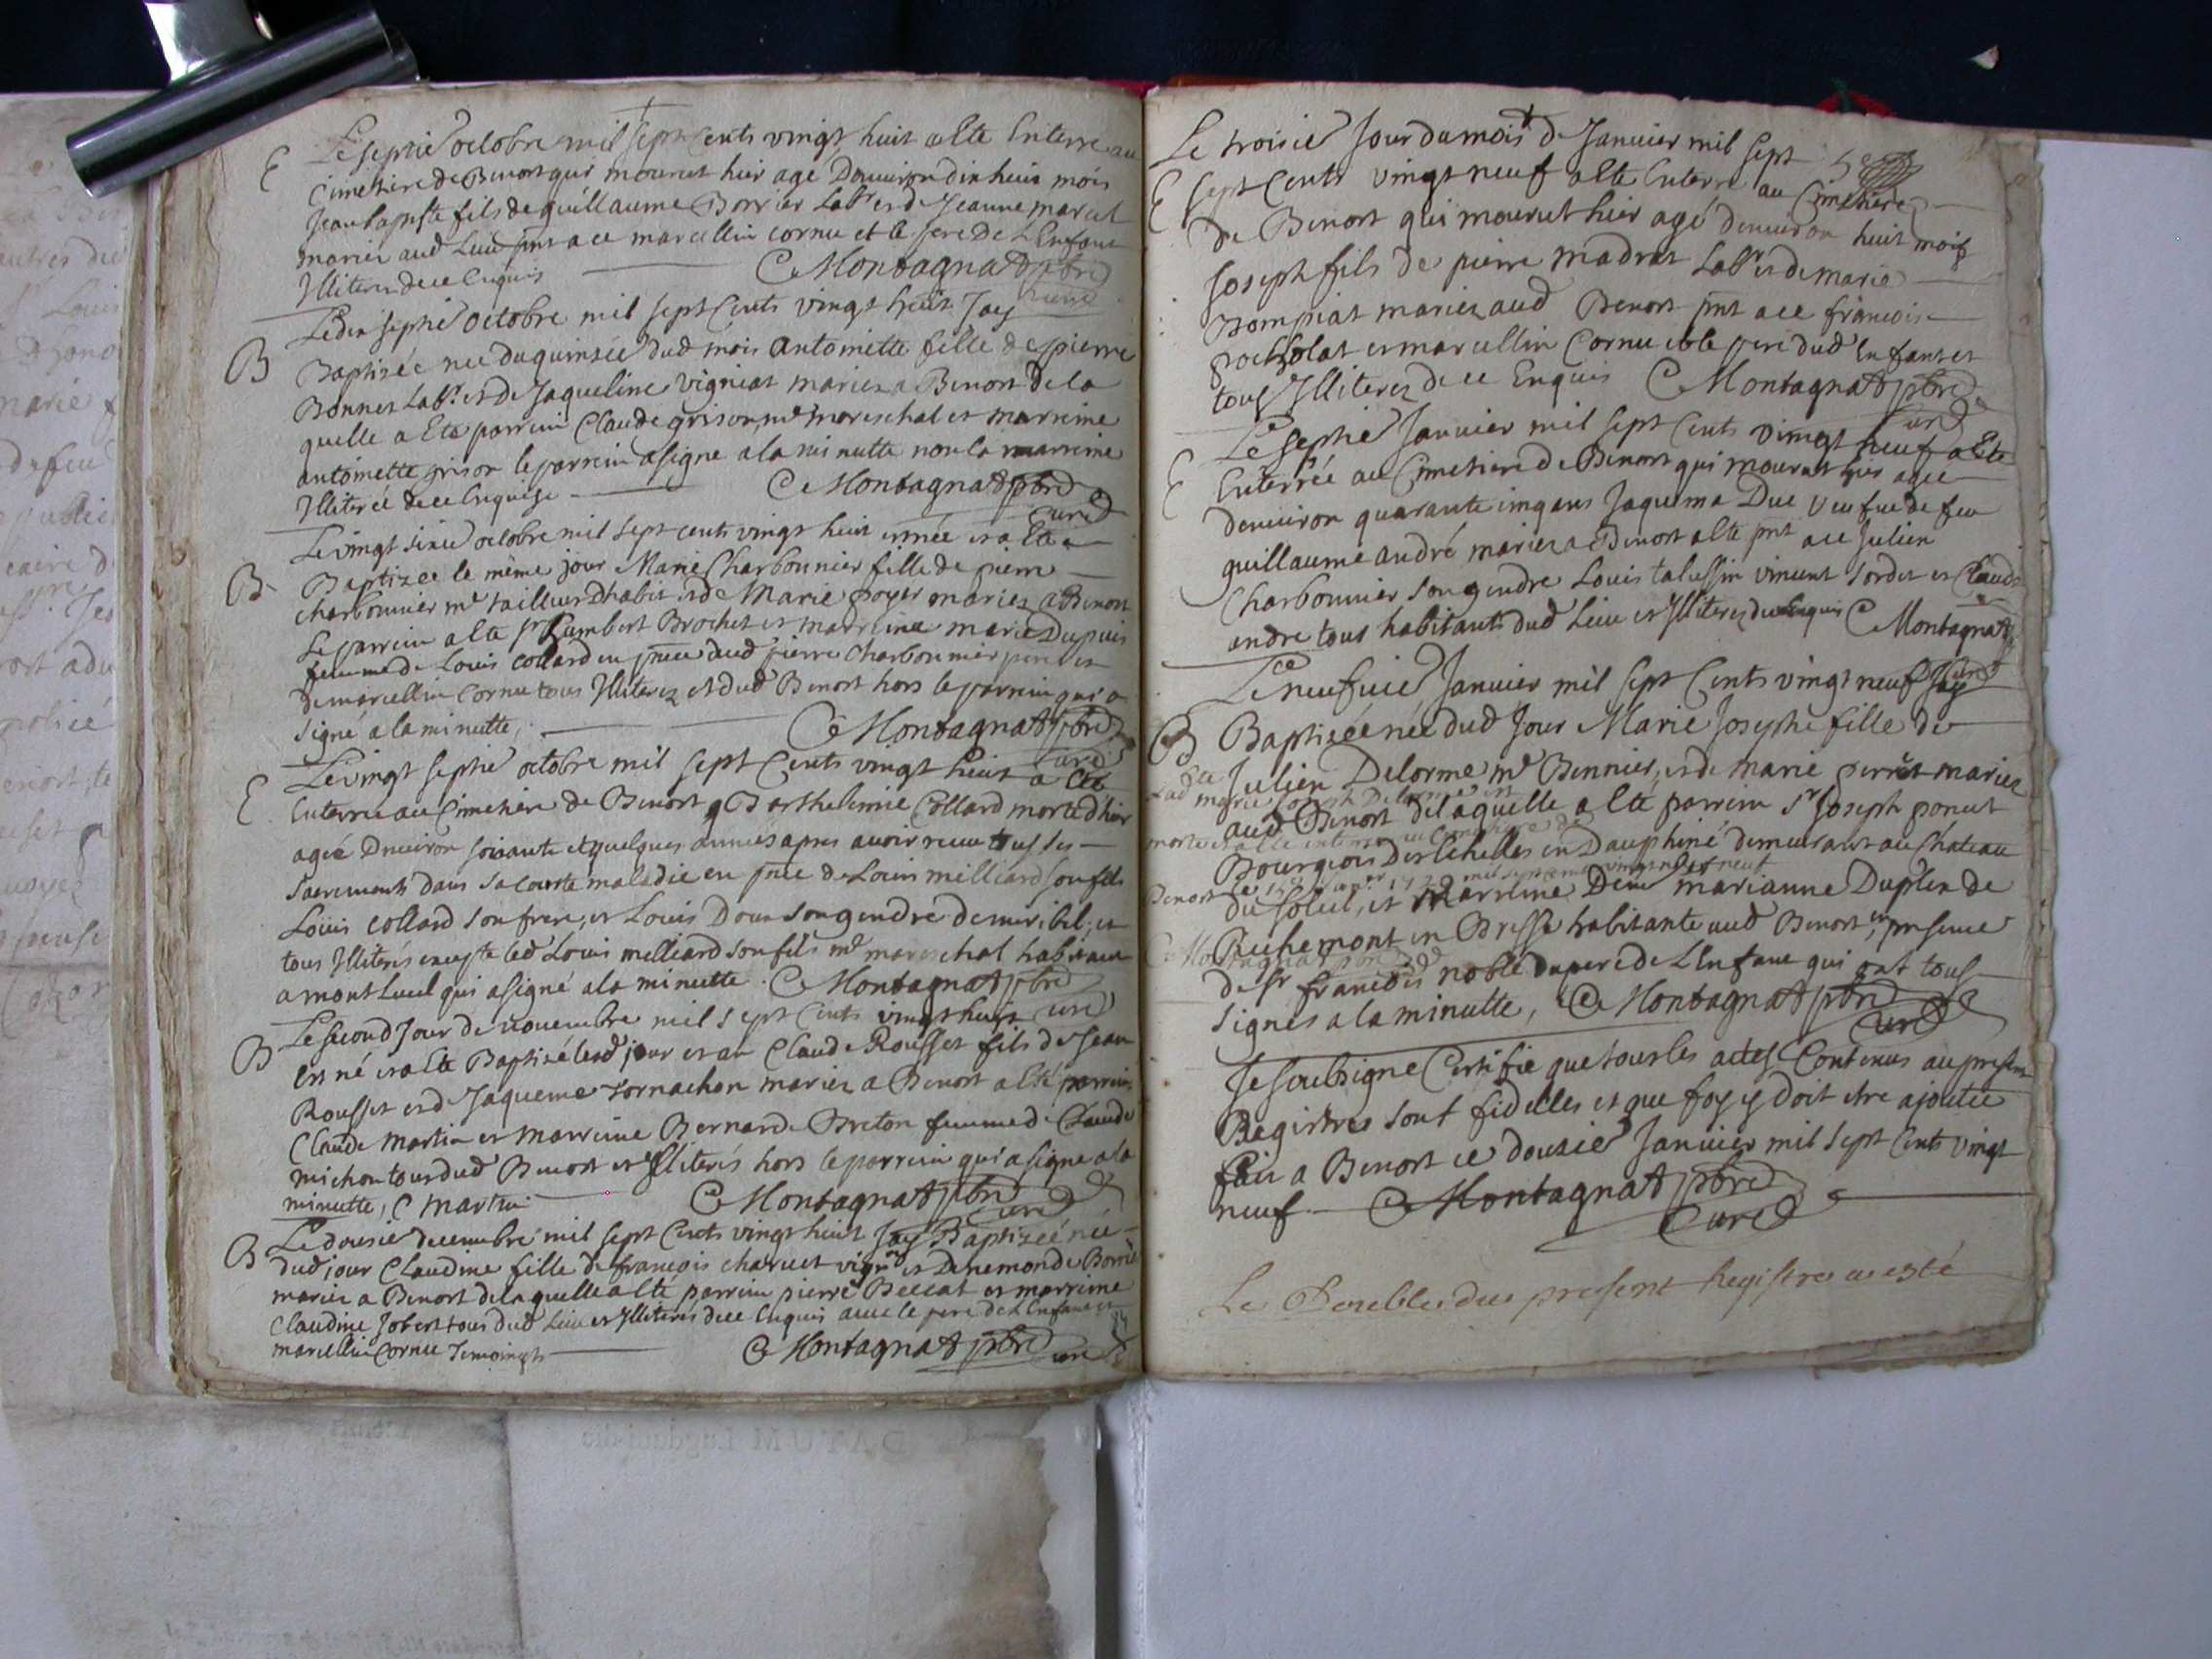 Le septie octobre mil sept Cents vingt huit a Ete Enterre au
E Cimetiere de Benost qui mourut hier age Denviron dix huit mois
Jean baptiste fils de guillaume Borrier Labr et de Jeanne marcel
mariez aud Lieu pnt a ce marcellin cornu et le pere de L Enfant
Illiteres de ce Enquis C Montagnat pbre
curé
Le dix septie octobre mil sept Cents vingt huit Jay
B Baptisée nee du quinsie dud mois antoinette fille de pierre
Bonnet Labr. et de Jaqueline vigniat mariez a Benost de la
quelle a Ete parrein Claude grison me mareschal et marreine
antoinette grison le parrein a signe a la minutte non la marreine
Illiterée de ce Enquise C Montagnat pbre
Curé
Le vingt sixie octobre mil sept cents vingt huit est née et a Ete
B Baptizee le même jour Marie Charbonnier fille de pierre
charbonnier me tailleur Dhabit et de Marie poyet mariez a Benost
Le parrein a Ete sr Lambert Brochet et marreine marie Dupuis
femme de Louis Collard en pnce dud pierre Charbonnier pere et
de marcellin Cornu tous Illiterez et dud Benost hors le parrein qui a
signé a la minutte, C Montagnat pbre
curé
Le vingt septie octobre mil sept Cents vingt huit a Ete
E Enterree au Cimetiere de Benost Barthelemie Collard morte d'hier
agée Denviron soixante et quelques années apres avoir receu tous ses
sacrements dans sa courte maladie en pnce de Louis milliard son fils
Louis collard son frere, et Louis Doux son gendre de miribel, et
tous Illiterés excepte led Louis milliard son fils me mareschal habitant
a mont Luel qui a signé a la minutte. C Montagnat pbre
curé
Le second Jour de novembre mil sept Cents vingt huit
B Est né et a Ete Baptizé lesd jour et an Claude Rousset fils de Jean
Rousset et de Jaqueme tornachon mariez a Benost a Eté parrein
Claude Martin et marreine Bernarde Breton femme de Claude
michon tous dud Benost et Illiterés hors le parrein qui a signe a la
minutte, C Martin C Montagnat pbre
curé
Le dousie decembre mil sept Cents vingt huit Jay Baptizeé née
B dud jour Claudine fille de francois charvet vigron et De nemonde Borrier
mariez a Benost de laquelle a Eté parrein pierre Beccat et marreine
Claudine Jobert tous dud Lieu et Illiterés de ce Enquis avec le pere de L Enfant et
marcellin Cornu Temoingts C Montagnat pbre curé
Le troisie Jour du mois de Janvier mil sept
E sept Cents vingt neuf a Ete Enterre au Cimetiere
de Benost qui mourut hier agé denviron huit mois
Joseph fils de pierre madret Labr et de marie
Bompiat mariez aud Benost pnt a ce francois
et marcellin Cornu et le pere dud Enfant et
tous Illiterez de ce Enquis C Montagnat pbre
Curé
Le septie Janvier mil sept Cents vingt neuf a Ete
E Enterrée au Cimetiere de Benost qui mourut hier agée
denviron quarante cinq ans Jaquema Duc veufve de feu
guillaume andré mariez a Benost a Ete pnt a ce Julien
Charbonnier son gendre Louis talussin vincent Sordet et Claude
andre tous habitants dud Lieu et Illiterez de ce Enquis C Montagnat
Curé
Le neufvie Janvier mil sept Cents vingt neuf Jay
B Baptizeé neé dud Jour Marie Josephe fille de
Julien Delorme me Bennier, et de marie perret mariez
Lad marie Joseph Delorme est
aud Benost de laquelle a Eté parrein Sr Joseph poncet
morte et a Ete enterree au Cimetiere de
Bourgeois Des Echelles en Dauphiné demeurant au Chateau
Benost Le Janvier mil sept cents vingt neuf
du soleil, et Marreine Delle marianne Duplex de
Richemont en Bresse habitante aud Benost, en presence
C Montagnat pbre
de Sr francois noble du pere de L Enfant qui ont tous
signés a la minutte, C Montagnat pbre
Curé
Je soubsigne Certifie que tous les actes Contenus au present
Registres sont fidelles et que foy y doit etre ajoutée
fait a Benost ce dousie Janvier mil sept Cents vingt
neuf. C Montagnat pbre
Curé
Le Double du present Registre a esté